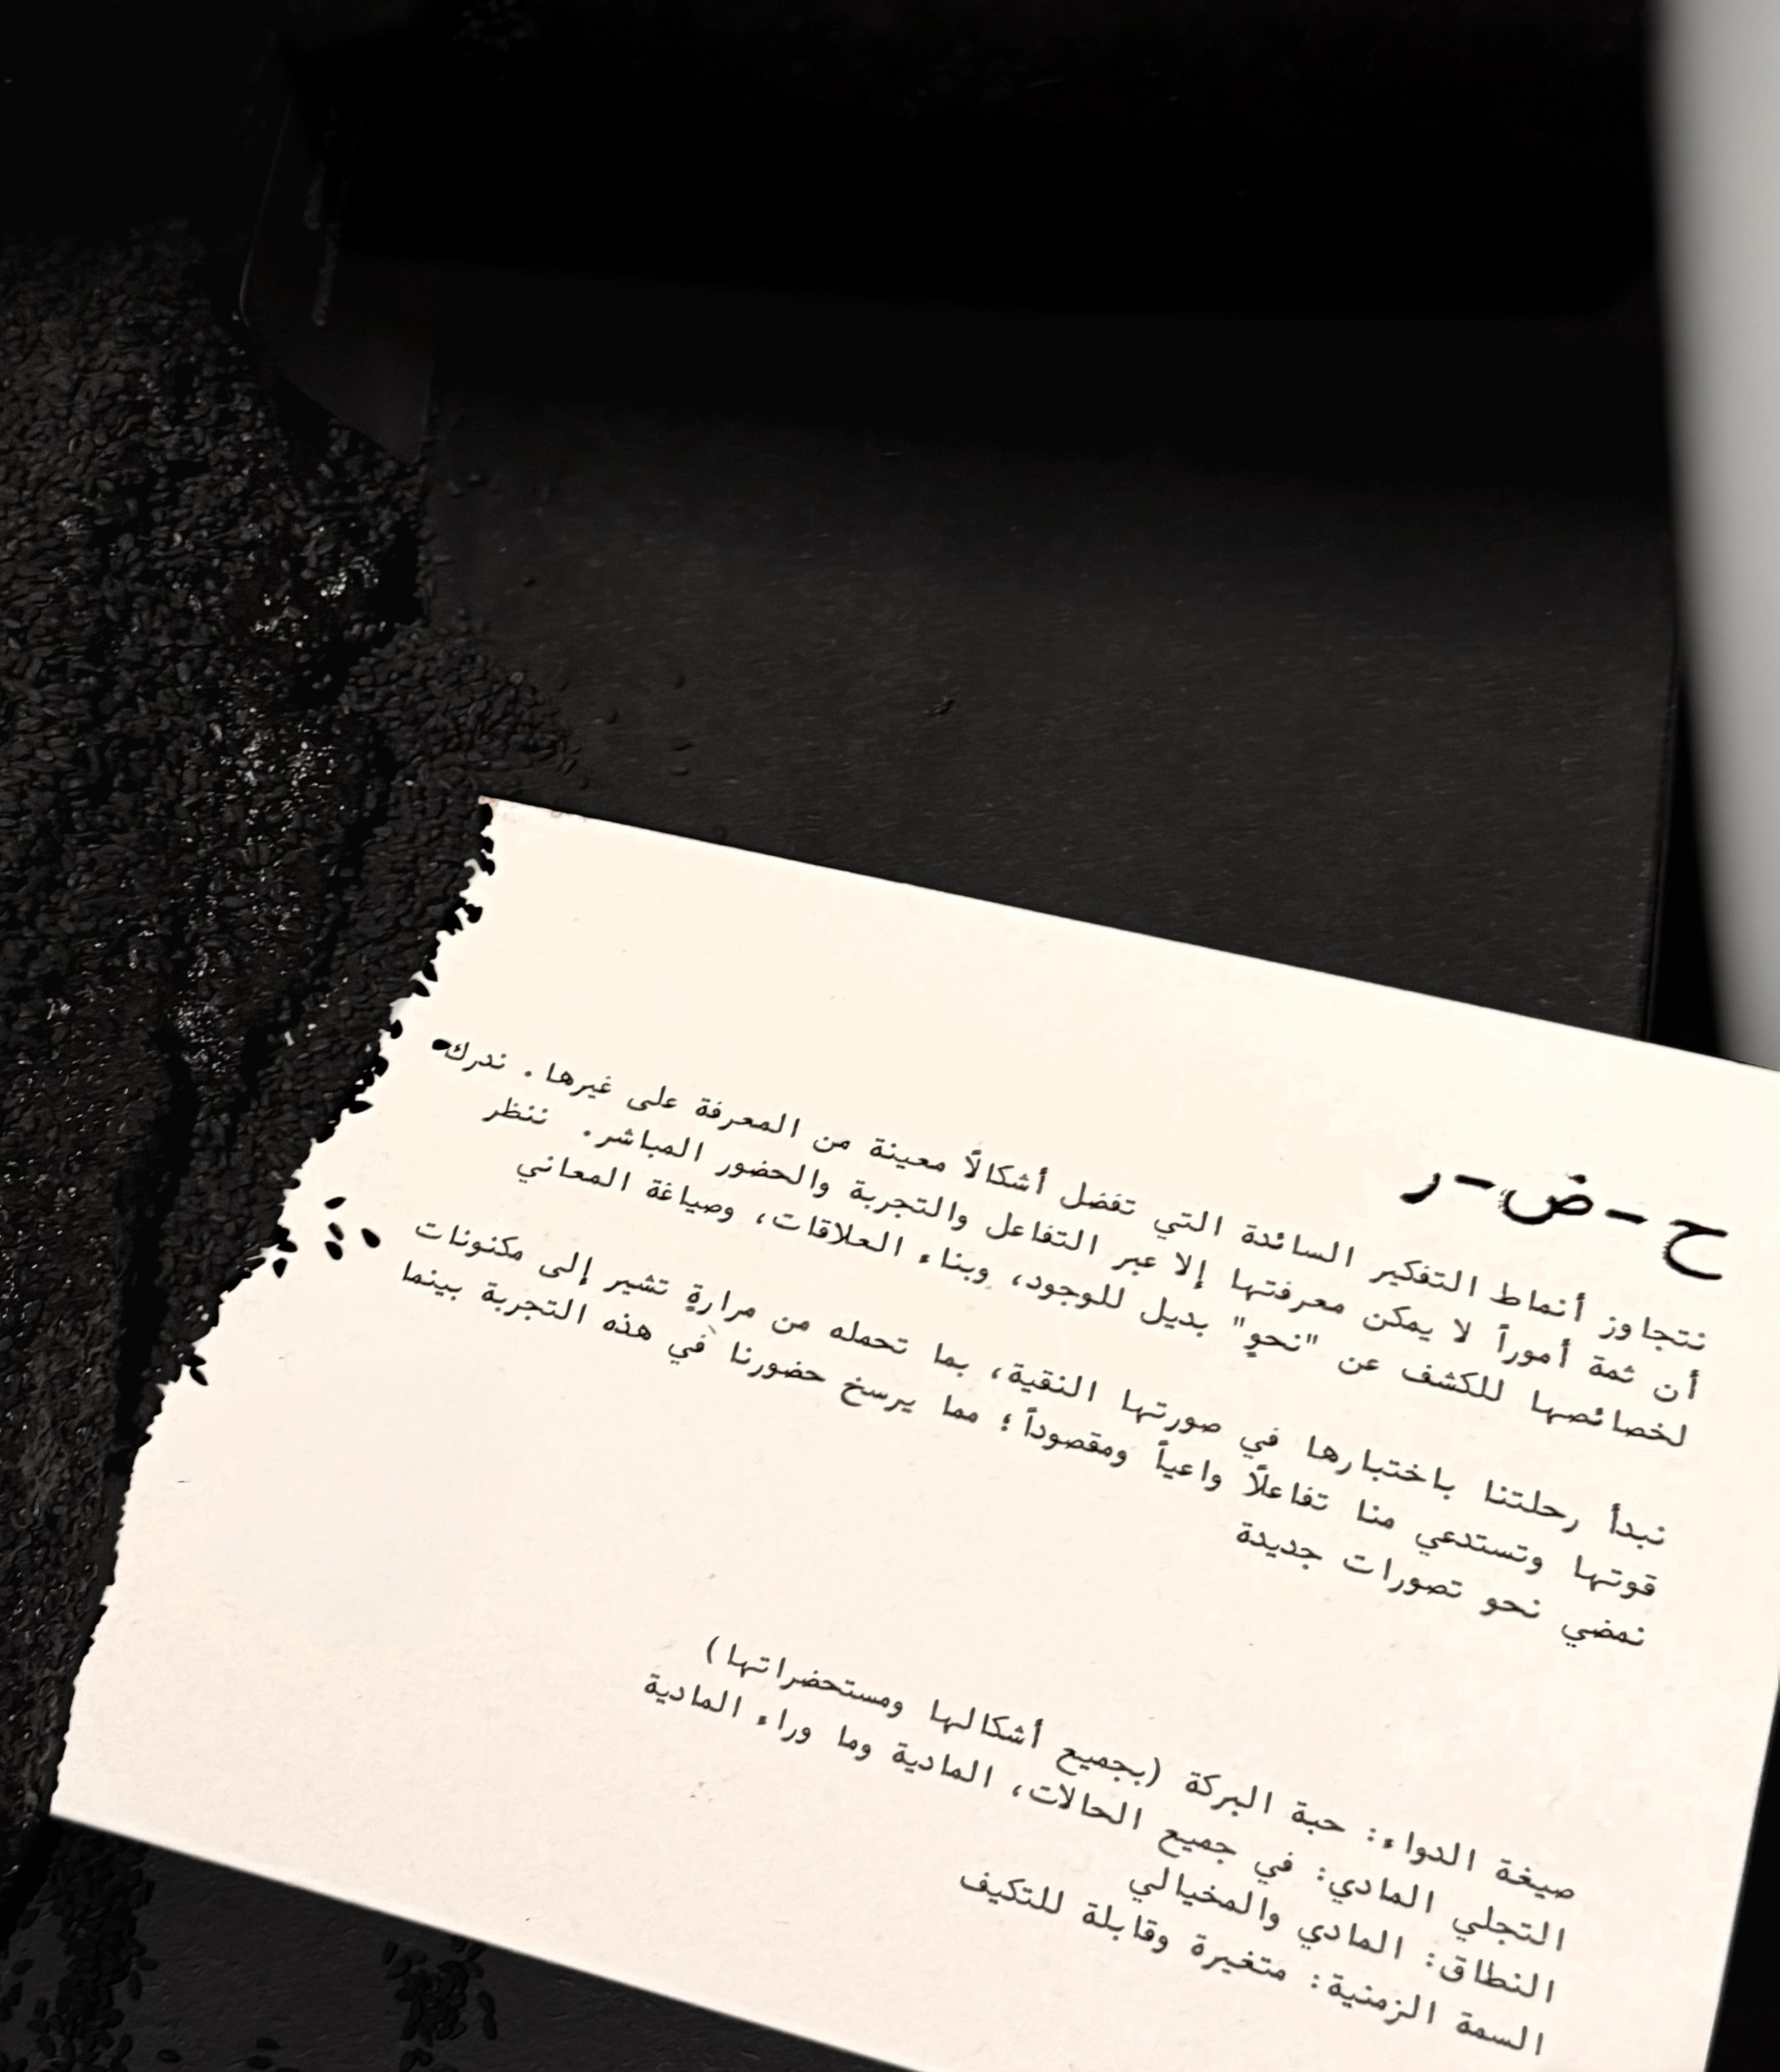 ح-ض-ر
نتجاوز أنماط التفكير السائدة التي تفضل أشكالًا معينة من المعرفة على غيرها. ندرك
أن ثمة أموراً لا يمكن معرفتها إلا عبر التفاعل والتجربة والحضور المباشر. ننظر
لخصائصها للكشف عن "نحوٍ" بديل للوجود، وبناء العلاقات، وصياغة المعاني
نبدأ رحلتنا باختبارها في صورتها النقية، بما تحمله من مرارةٍ تشير إلى مكنونات
قوتها وتستدعي منا تفاعلًا واعياً ومقصوداً؛ مما يرسخ حضورنا في هذه التجربة بينما
نمضي نحو تصورات جديدة
صيغة الدواء: حبة البركة (بجميع أشكالها ومستحضراتها)
التجلي المادي: في جميع الحالات، المادية وما وراء المادية
النطاق: المادي والمخيالي
السمة الزمنية: متغيرة وقابلة للتكيف